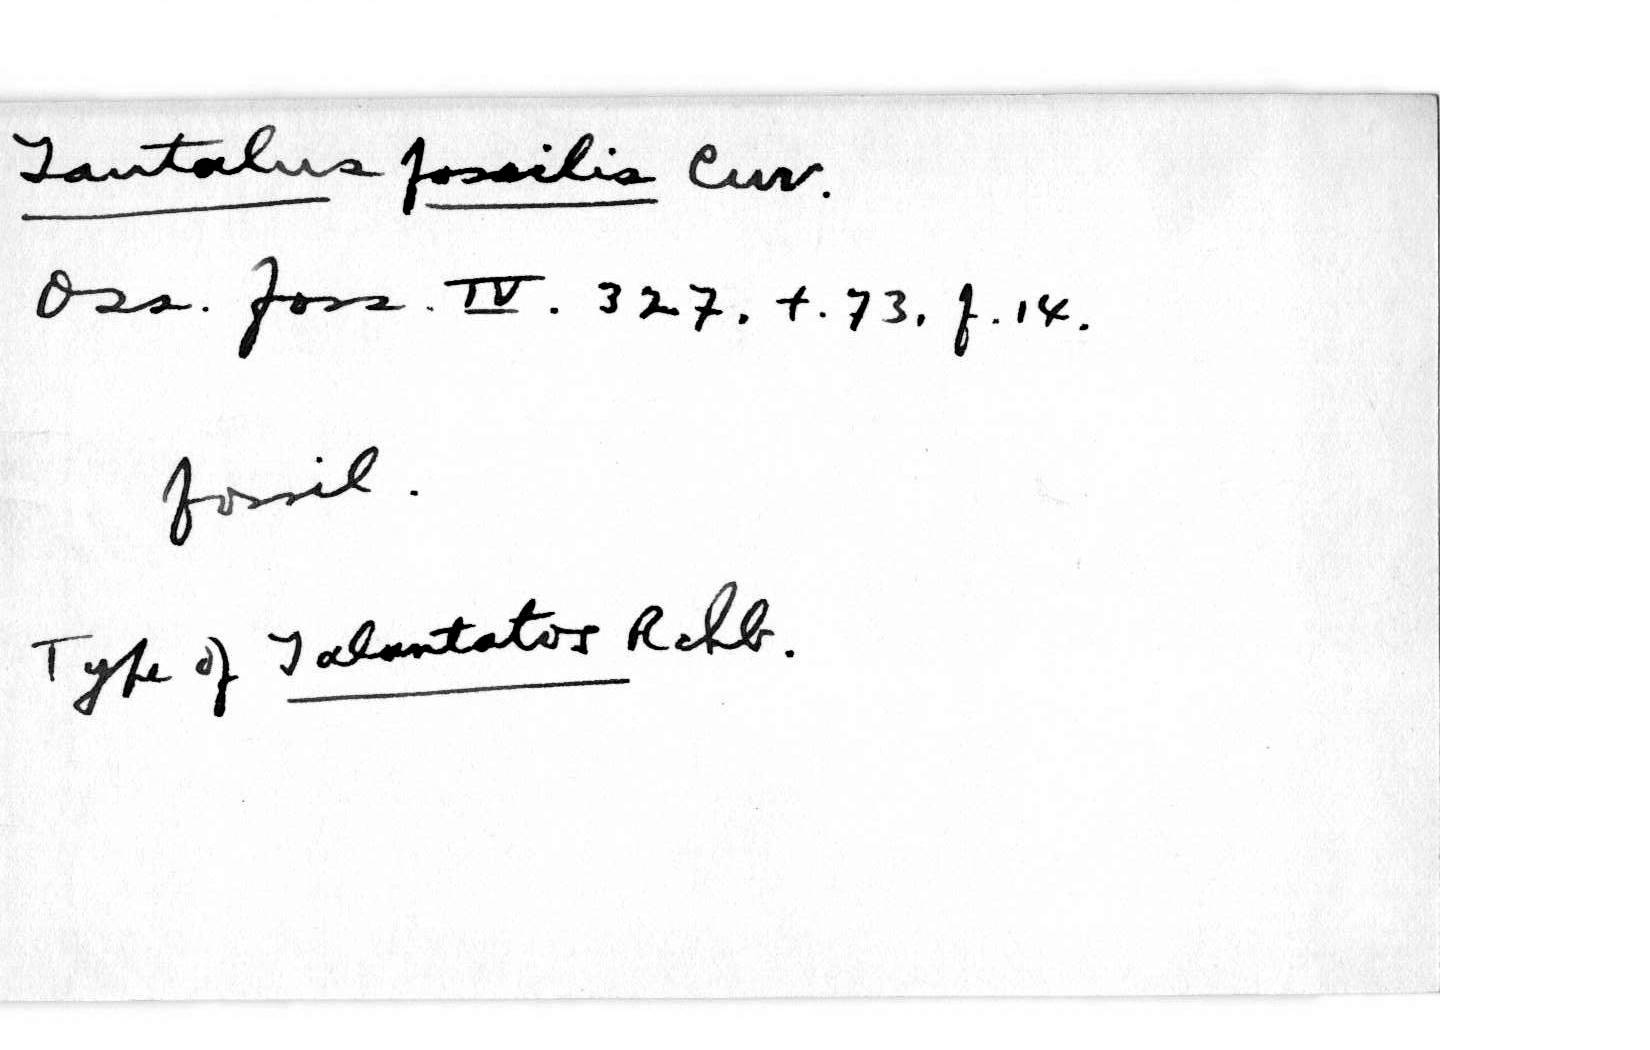 Tantalus fossilis Cuv.
Oss. foss. IV. 327. t. 73. f. 14.
fossil.
Type of Talantatos Rchb.